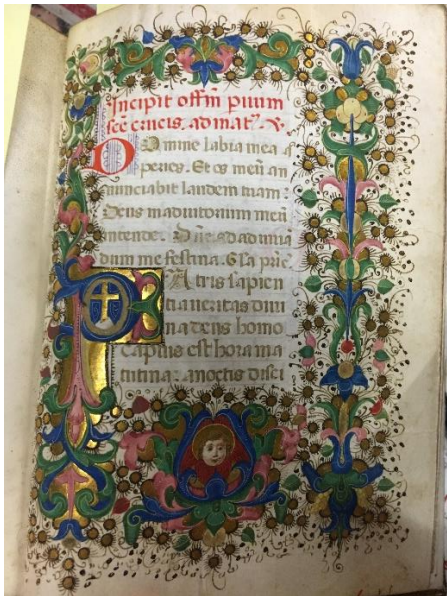 Incipit offm̄ pũum
scē crucis. ad mat̄. ℟.
Domine labia mea a
peries. Et os meũ an
nunciabit laudem tuam:
Deus in adiutorium meũ
intende. Dñe ad adiuuã
dum me festina. Gla p̃ri
Patris sapien
tia ueritas diui
na deus homo
captus est hora ma
tutina: a noctis disci